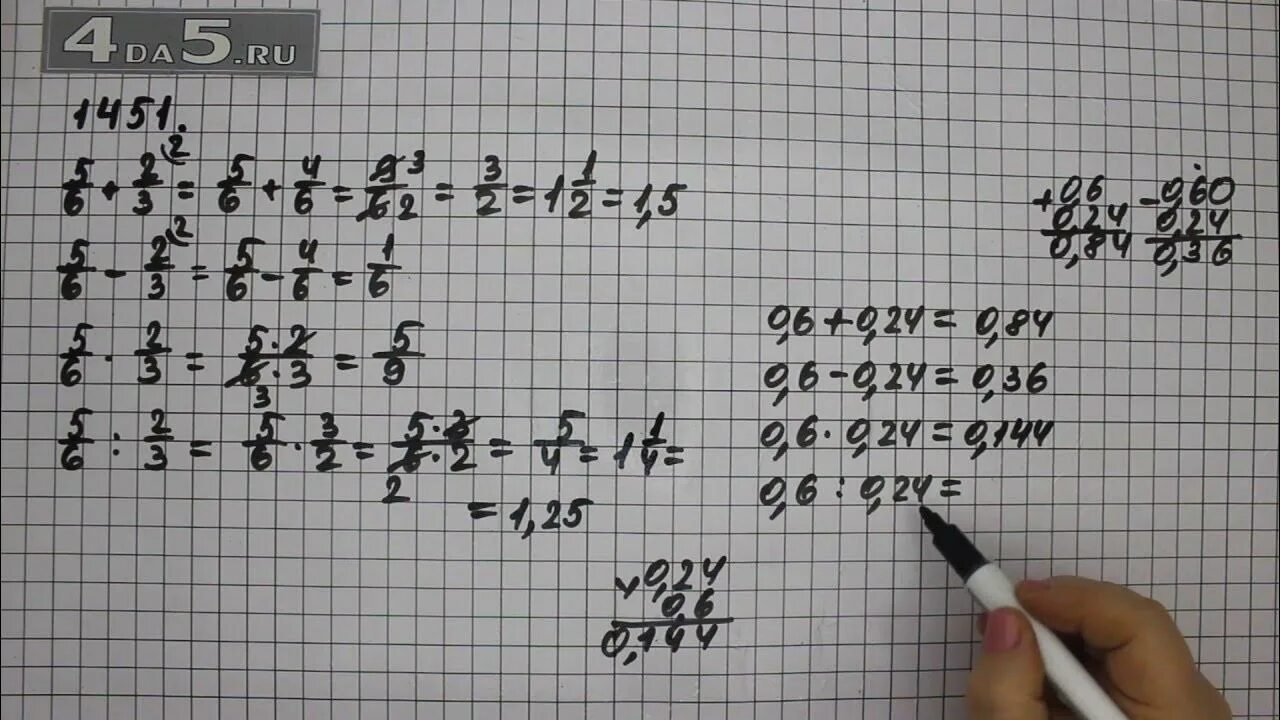 4DA5.RU
1451.
5/6 + 2/3 (2 = 5/6 + 4/6 = 9 3/6 2 = 3/2 = 1 1/2 = 1,5
5/6 - 2/3 (2 = 5/6 - 4/6 = 1/6
5/6 · 2/3 = 5·2/6·3 3 = 5/9
5/6 : 2/3 = 5/6 · 3/2 = 5·3/6·2 2 = 5/4 = 1 1/4 =
= 1,25
+0,6
0,24
0,84
-0,60
0,24
0,36
0,6+0,24=0,84
0,6-0,24=0,36
0,6·0,24=0,144
0,6:0,24=
×0,24
0,6
0,144